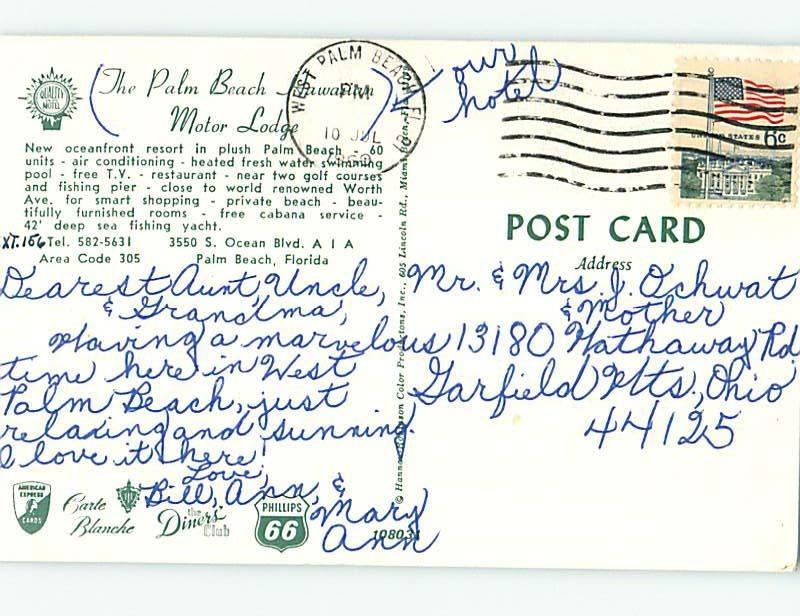 The Palm Beach Hawaiian
Motor Lodge
QUALITY
MOTEL
our
hotel
WEST PALM BEACH FL
PM
10 JUL
UNITED STATES 6c
New oceanfront resort in plush Palm Beach - 60
units - air conditioning - heated fresh water swimming
pool - free T.V. - restaurant - near two golf courses
and fishing pier - close to world renowned Worth
Ave. for smart shopping - private beach - beau-
tifully furnished rooms - free cabana service -
42' deep sea fishing yacht.
XT.156 Tel. 582-5631 3550 S. Ocean Blvd. A 1 A
Area Code 305 Palm Beach, Florida
Dearest Aunt, Uncle,
& Grandma,
Having a marvelous
time here in West
Palm Beach, just
relaxing and sunning.
I love it here!
Love,
Bill, Ann, &
Mary
Ann
AMERICAN
EXPRESS
CARDS
Carte
Blanche
the
Diners'
Club
PHILLIPS
66
108031
© Hannau Robinson Color Productions, Inc., 605 Lincoln Rd., Miami Beach, Fla.
POST CARD
Address
Mr. & Mrs. J. Ochwat
& Mother
13180 Hathaway Rd.
Garfield Hts., Ohio
44125